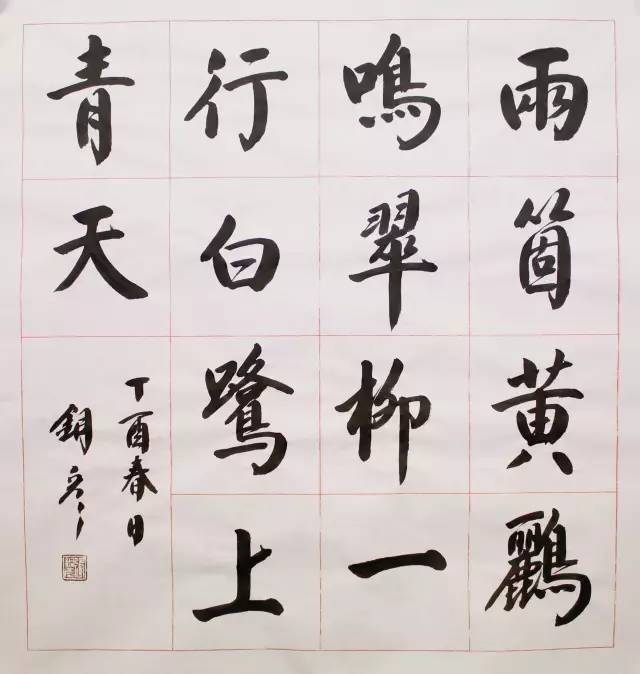 兩箇黃鸝
鳴翠柳一
行白鷺上
青天
丁酉春日